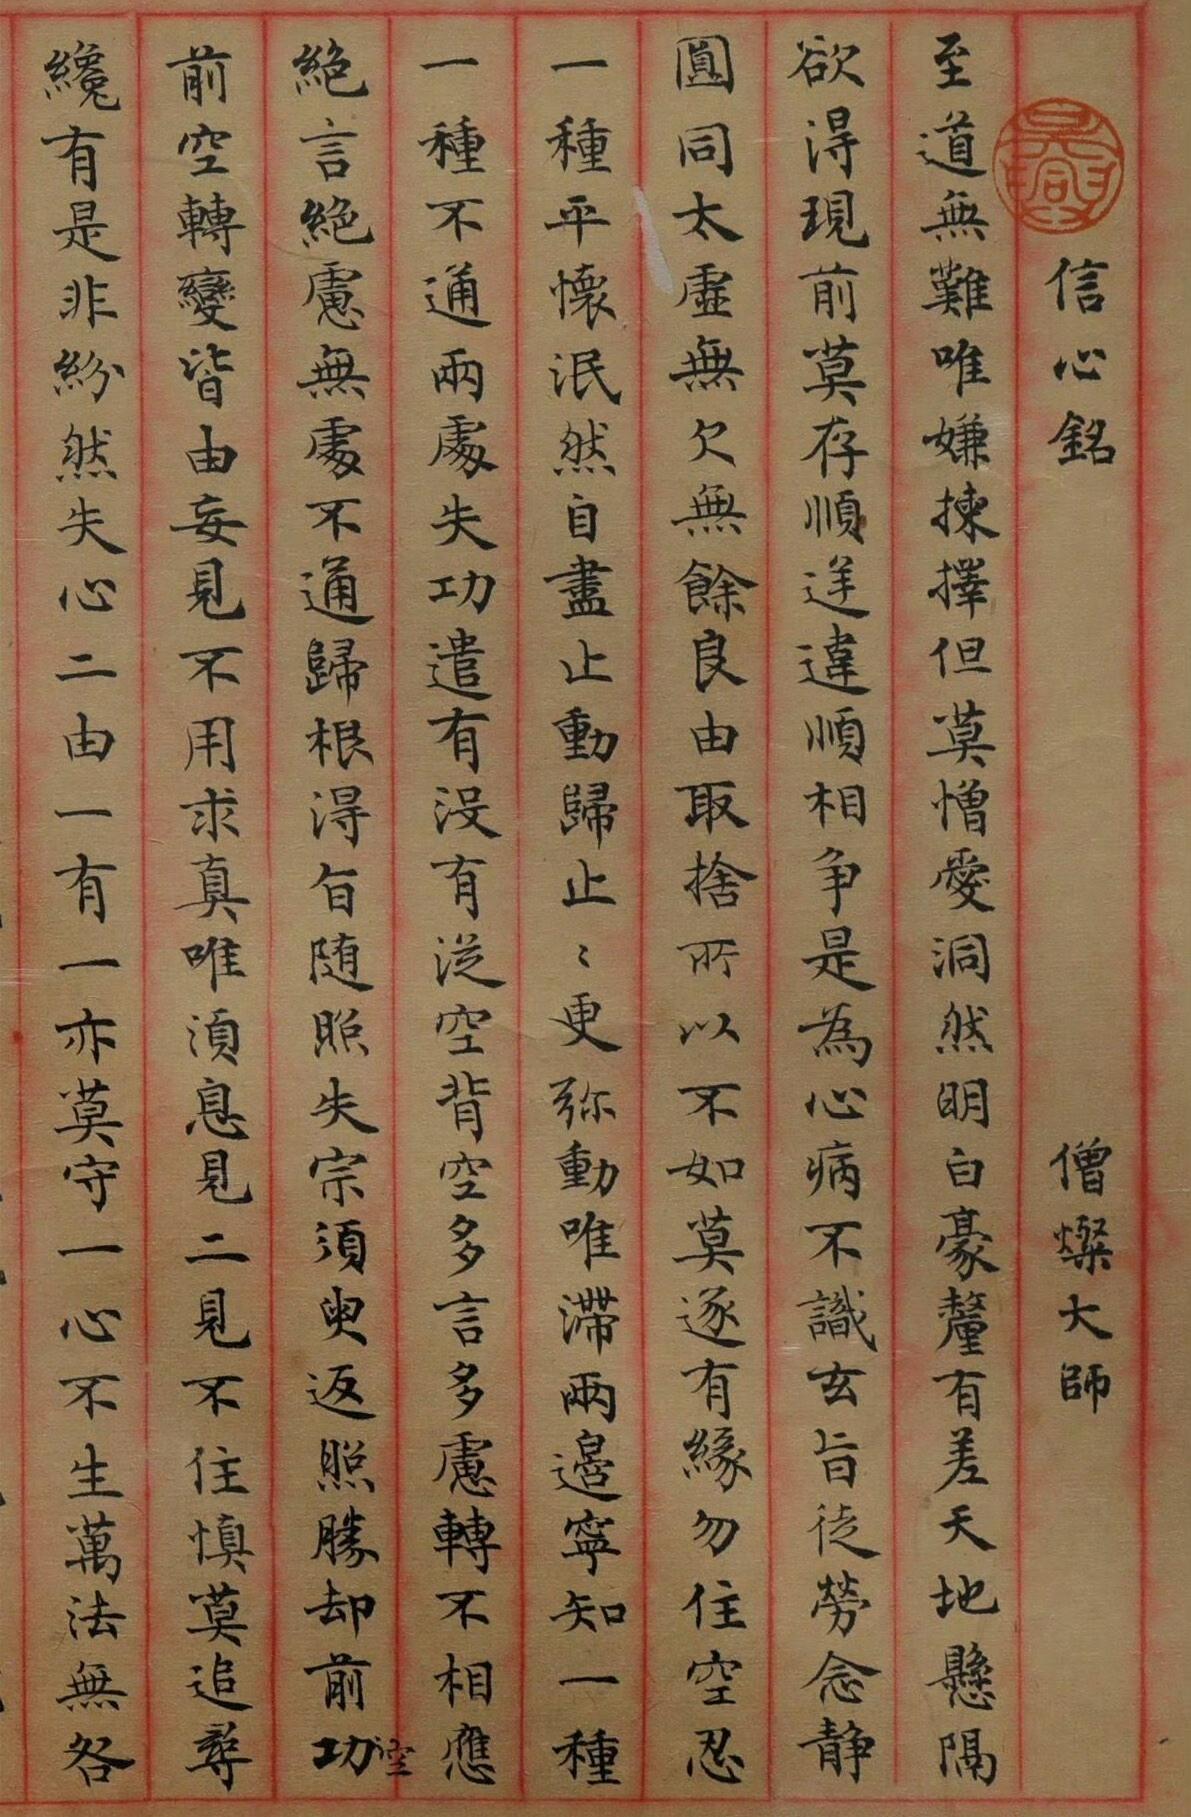 信心銘 僧燦大師
至道無難唯嫌揀擇但莫憎愛洞然明白豪釐有差天地懸隔
欲得現前莫存順逆違順相争是為心病不識玄旨徒勞念静
圓同太虛無欠無餘良由取捨所以不如莫逐有緣勿住空忍
一種平懷泯然自盡止動歸止〻更弥動唯滯兩邊寧知一種
一種不通兩處失功遣有没有従空背空多言多慮轉不相應
絕言絕慮無處不通歸根得旨随照失宗須臾返照勝却前功空
前空轉變皆由妄見不用求真唯須息見二見不住慎莫追尋
纔有是非紛然失心二由一有一亦莫守一心不生萬法無咎